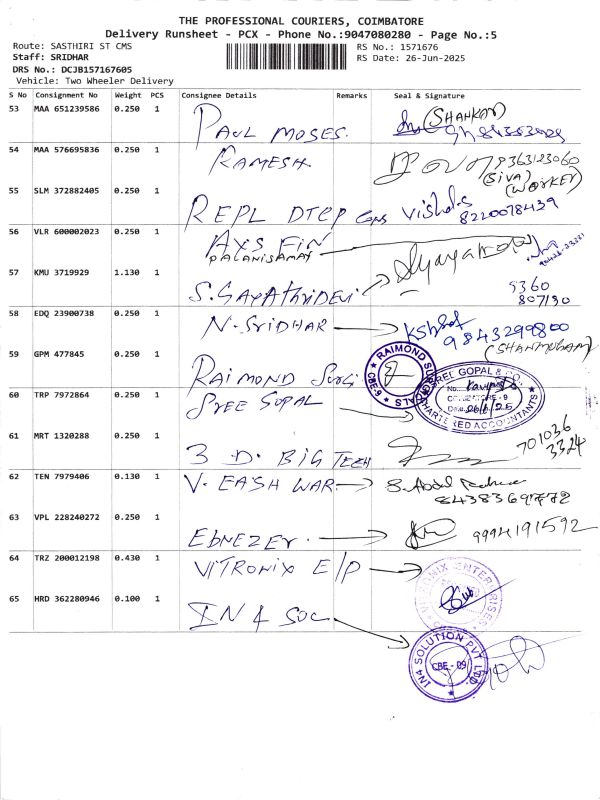 THE PROFESSIONAL COURIERS, COIMBATORE
Delivery Runsheet - PCX - Phone No.:9047080280 - Page No.:5
Route: SASTHIRI ST CMS
RS No.: 1571676
Staff: SRIDHAR
RS Date: 26-Jun-2025
DRS No.: DCJB157167605
Vehicle: Two Wheeler Delivery
S No Consignment No Weight PCS Consignee Details Remarks Seal & Signature
53 MAA 651239586 0.250 1 PAUL MOSES. (SHANKAR)
54 MAA 576695836 0.250 1 RAMESH 9363123060
(SIVA)
(WORKER)
55 SLM 372882405 0.250 1 REPL DTCP Vishal.S
8220078439
56 VLR 600002023 0.250 1 AXIS FIN
PALANISAMAY
57 KMU 3719929 1.130 1 S. GAYATHRI DEVI
9360
807190
58 EDQ 23900738 0.250 1 N. SRIDHAR
9843299800
(SHANMUGAM)
59 GPM 477845 0.250 1 RAIMOND SURGI
RAIMOND
CBE-9
60 TRP 7972864 0.250 1 SREE GOPAL
SREE GOPAL & CO.,
No.
COIMBATORE - 9
CHARTERED ACCOUNTANTS
61 MRT 1320288 0.250 1 3 D. BIG TECH
701036
3324
62 TEN 7979406 0.130 1 V. EASH WAR S. Abdul
63 VPL 228240272 0.250 1 EBNEZER. 9994191592
64 TRZ 200012198 0.430 1 VITRONIX E/P
VITRONIX ENTERPRISES
65 HRD 362280946 0.100 1 IN 4 SOL
IN4 SOLUTION PVT LTD.
CBE - 09